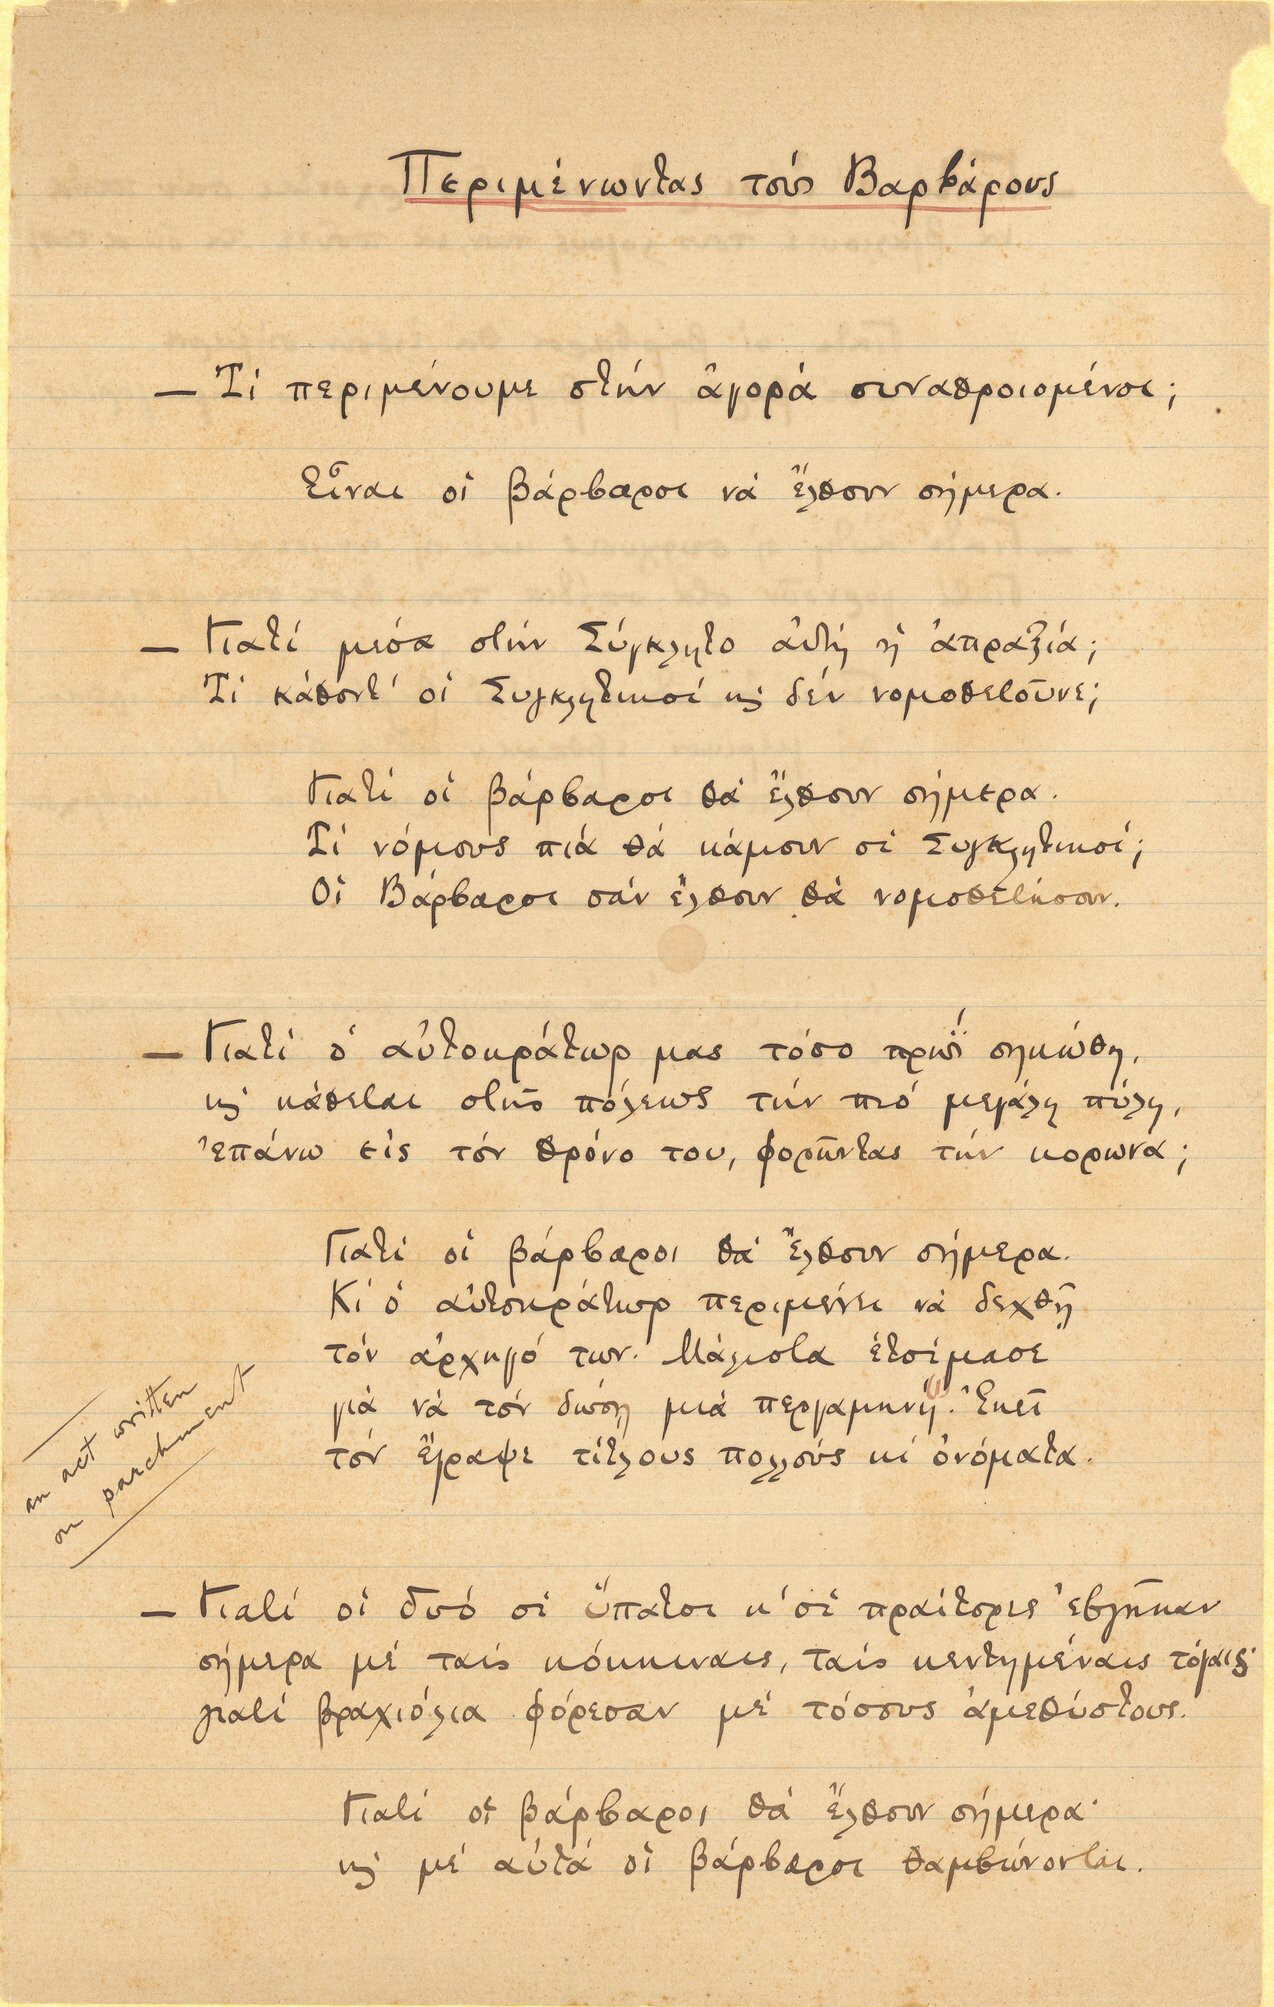 Περιμένωντας τούς Βαρβάρους
— Τί περιμένουμε στήν ἀγορά συναθροισμένοι;
Εἶναι οἱ βάρβαροι νά ἔλθουν σήμερα.
— Γιατί μέσα στήν Σύγκλητο αὐτή ἡ ἀπραξία;
Τί κάθοντ' οἱ Συγκλητικοί κϳ δέν νομοθετοῦνε;
Γιατί οἱ βάρβαροι θά ἔλθουν σήμερα.
Τί νόμους πιά θά κάμουν οἱ Συγκλητικοί;
Οἱ Βάρβαροι σάν ἔλθουν θά νομοθετήσουν.
— Γιατί ὁ αὐτοκράτωρ μας τόσο πρωΐ σηκώθη,
κϳ κάθεται στῆς πόλεως τήν πιό μεγάλη πύλη,
ἐπάνω εἰς τόν θρόνο του, φορῶντας τήν κορωνα;
Γιατί οἱ βάρβαροι θά ἔλθουν σήμερα.
Κι ὁ αὐτοκράτωρ περιμένει νά δεχθῇ
τόν ἀρχηγό των. Μάλιστα ἑτοίμασε
γιά νά τόν δώσῃ μιά περγαμηνή. Ἐκεῖ
τόν ἔγραψε τίτλους πολλούς κι ὀνόματα.
an act written
on parchment
— Γιατί οἱ δυό οἱ ὕπατοι κ' οἱ πραίτορες ἐβγῆκαν
σήμερα μέ ταίς κόκκιναις, ταίς κεντημέναις τόγαις·
γιατί βραχιόλια φόρεσαν μέ τόσους ἀμεθύστους.
Γιατί οἱ βάρβαροι θά ἔλθουν σήμερα·
κϳ μέ αὐτά οἱ βάρβαροι θαμβώνονται.